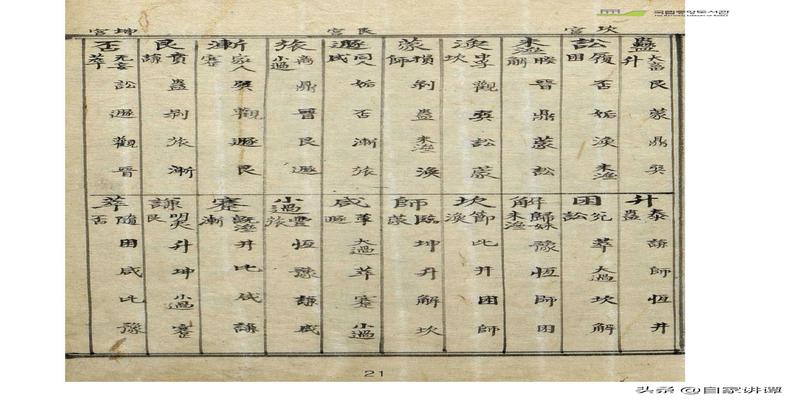 坎宮
艮宮
坤宮
蠱 大畜 升 艮 蒙 鼎 巽
訟 履 困 否 姤 渙 未濟
未濟 睽 解 晉 鼎 蒙 訟
渙 中孚 坎 觀 巽 訟 蒙
蒙 損 師 剝 蠱 未濟 渙
遯 同人 咸 姤 否 漸 旅
旅 离 小過 鼎 晉 艮 遯
漸 家人 蹇 巽 觀 遯 艮
艮 賁 謙 蠱 剝 旅 漸
否 无妄 萃 訟 遯 觀 晉
升 泰 蠱 謙 師 恆 井
困 兌 訟 萃 大過 坎 解
解 歸妹 未濟 豫 恆 師 困
坎 節 渙 比 井 困 師
師 臨 蒙 坤 升 解 坎
咸 革 遯 大過 萃 蹇 小過
小過 豊 旅 恆 豫 謙 咸
蹇 既濟 漸 井 比 咸 謙
謙 明夷 艮 升 坤 小過 蹇
萃 隨 否 困 咸 比 豫
21
头条 @自家讲谭